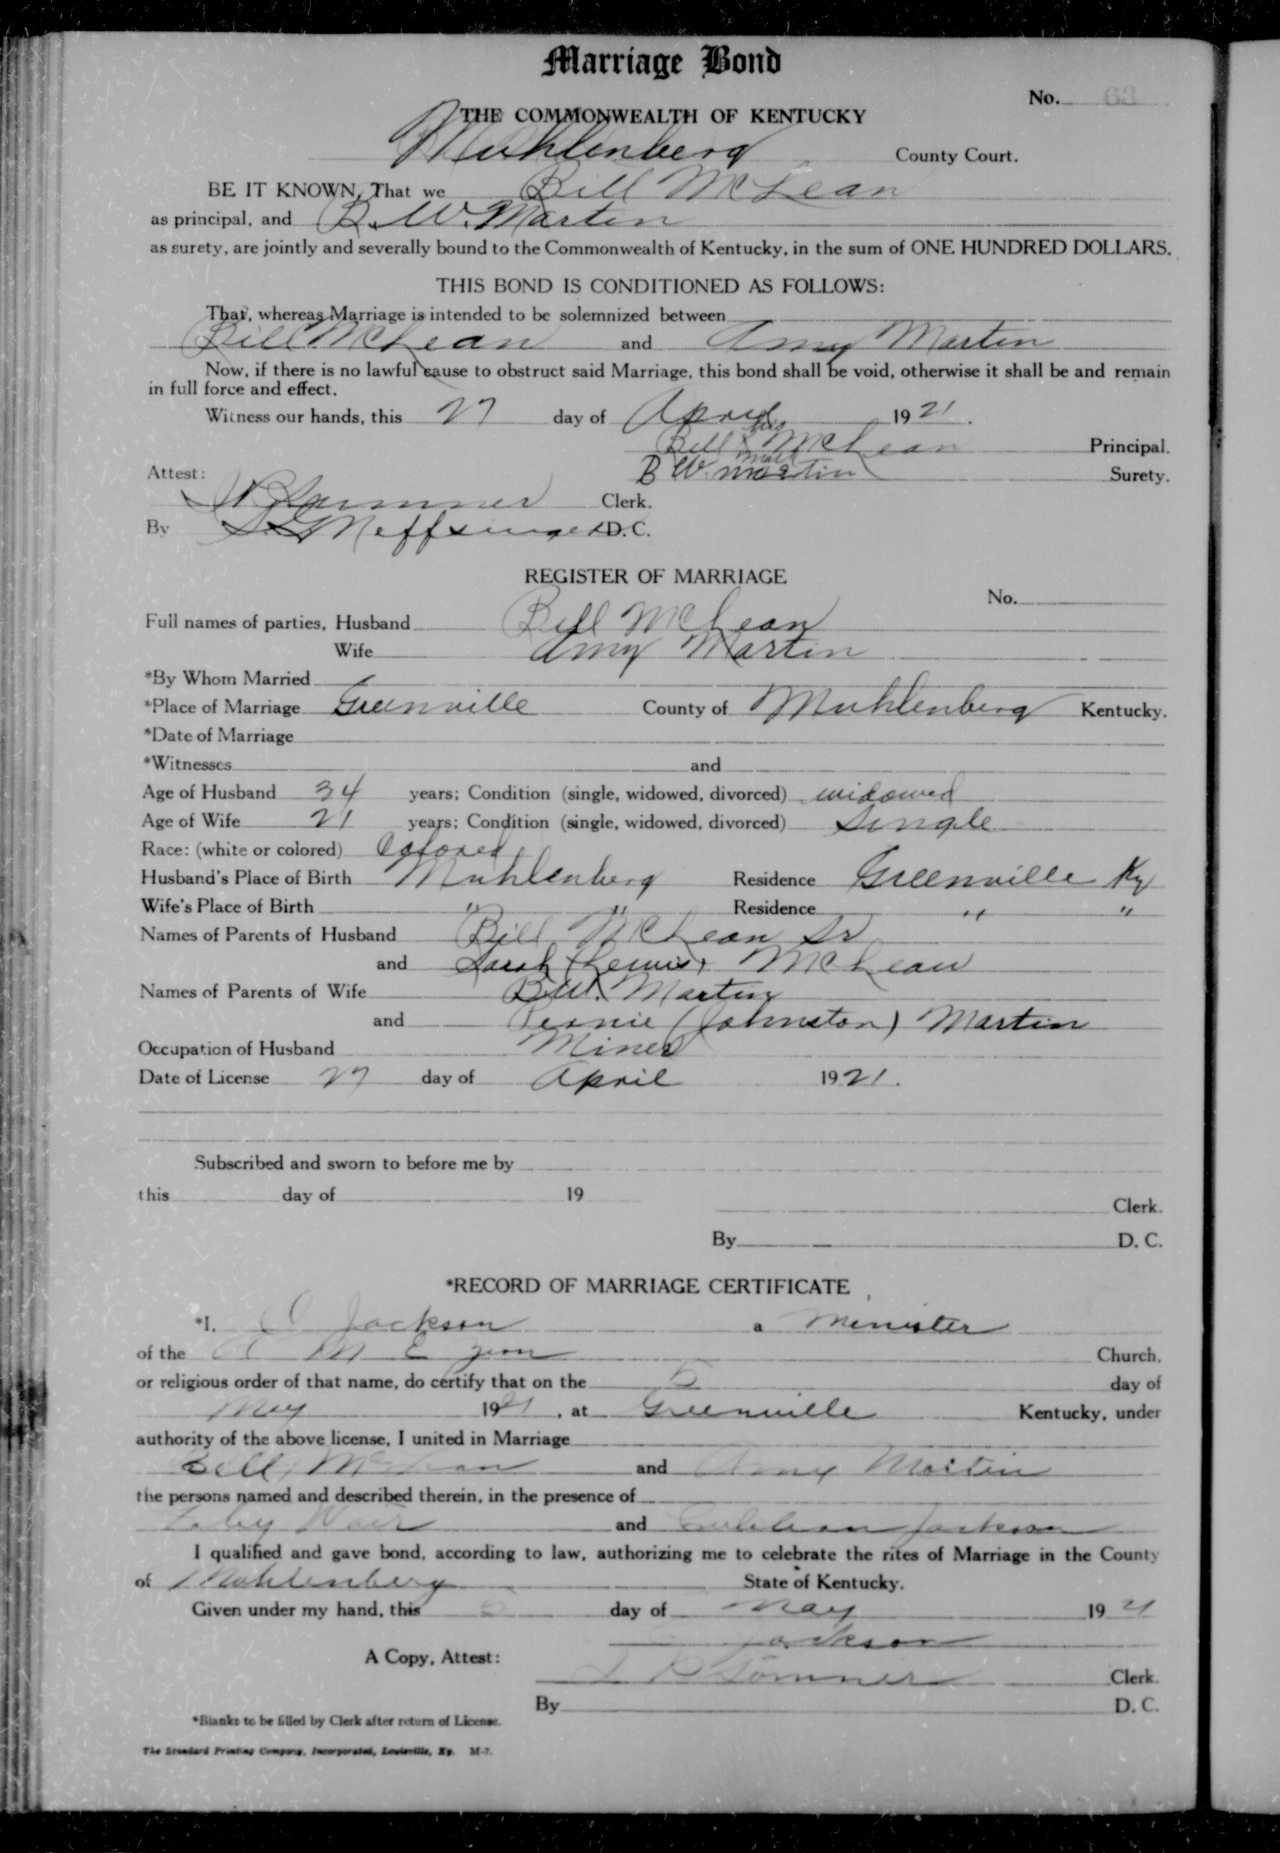 Marriage Bond
No. 63
THE COMMONWEALTH OF KENTUCKY
Muhlenberg County Court.
BE IT KNOWN, That we Bill McLean
as principal, and B. W. Martin
as surety, are jointly and severally bound to the Commonwealth of Kentucky, in the sum of ONE HUNDRED DOLLARS.
THIS BOND IS CONDITIONED AS FOLLOWS:
That, whereas Marriage is intended to be solemnized between
Bill McLean and Amy Martin
Now, if there is no lawful cause to obstruct said Marriage, this bond shall be void, otherwise it shall be and remain
in full force and effect.
Witness our hands, this 27 day of April 1921.
his
Bill X McLean Principal.
mark
Attest: B W. Martin Surety.
Clerk.
By D. C.
REGISTER OF MARRIAGE
No.
Full names of parties, Husband Bill McLean
Wife Amy Martin
*By Whom Married
*Place of Marriage Greenville County of Muhlenberg Kentucky.
*Date of Marriage
*Witnesses and
Age of Husband 34 years; Condition (single, widowed, divorced) widowed
Age of Wife 21 years; Condition (single, widowed, divorced) Single
Race: (white or colored) Colored
Husband's Place of Birth Muhlenberg Residence Greenville Ky
Wife's Place of Birth " " Residence " "
Names of Parents of Husband Bill McLean Sr
and Sarah (Lewis) McLean
Names of Parents of Wife B. W. Martin
and (Johnston) Martin
Occupation of Husband Miner
Date of License 27 day of April 1921.
Subscribed and sworn to before me by
this day of 19
Clerk.
By D. C.
*RECORD OF MARRIAGE CERTIFICATE
*I, Jackson a Minister
of the A M E Zion Church,
or religious order of that name, do certify that on the 5 day of
May 1921, at Greenville Kentucky, under
authority of the above license, I united in Marriage
Bill McLean and Amy Martin
the persons named and described therein, in the presence of
and Jackson
I qualified and gave bond, according to law, authorizing me to celebrate the rites of Marriage in the County
of Muhlenberg State of Kentucky.
Given under my hand, this day of May 1921
Jackson
A Copy, Attest:
Clerk.
By D. C.
*Blanks to be filled by Clerk after return of License.
The Standard Printing Company, Incorporated, Louisville, Ky. M-7.